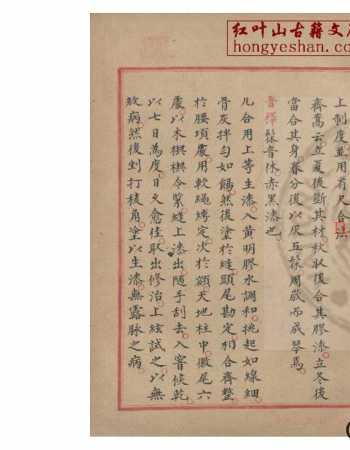 红叶山古籍文
hongyeshan.com
上制度並用有尺合法
齊嵩云立夏後斷其材秋後合其膠漆立冬後
當合其身春分後以灰互髹周歲而成琴焉
音擇髹音休赤黑漆也
凡合用上等生漆入黄明膠水調和挑起如線細
骨灰拌勻如餳然後塗於縫頭尾勘定相合齊整
於腰項處用軟繩縳定次於額天地柱中徽尾六
處以木楔楔令緊縫上漆出随手刮去入窨候乾
以七日為度日久愈佳取出修治上絃試之以無
敓病然後剉打棱角塗以生漆無露脉之病